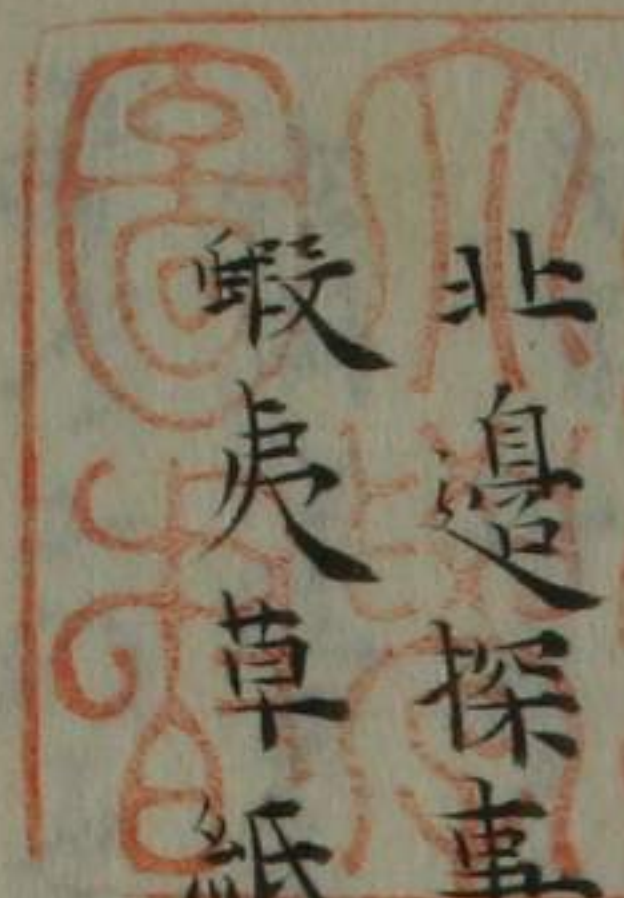 北邊探事
蝦夷草紙